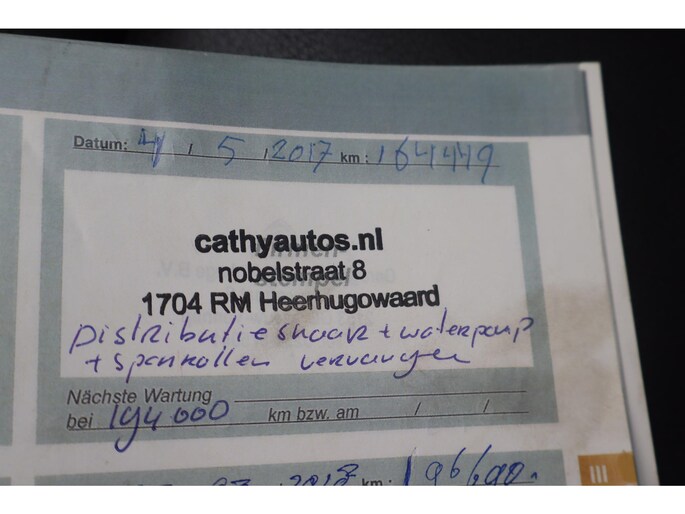 Datum: 4 / 5 / 2017 km: 164449
cathyautos.nl
nobelstraat 8
1704 RM Heerhugowaard
Distributiesnaar + waterpomp
+ Spanrollen vervangen
Nächste Wartung
bei 194000 km bzw. am / /
2018 km:
III